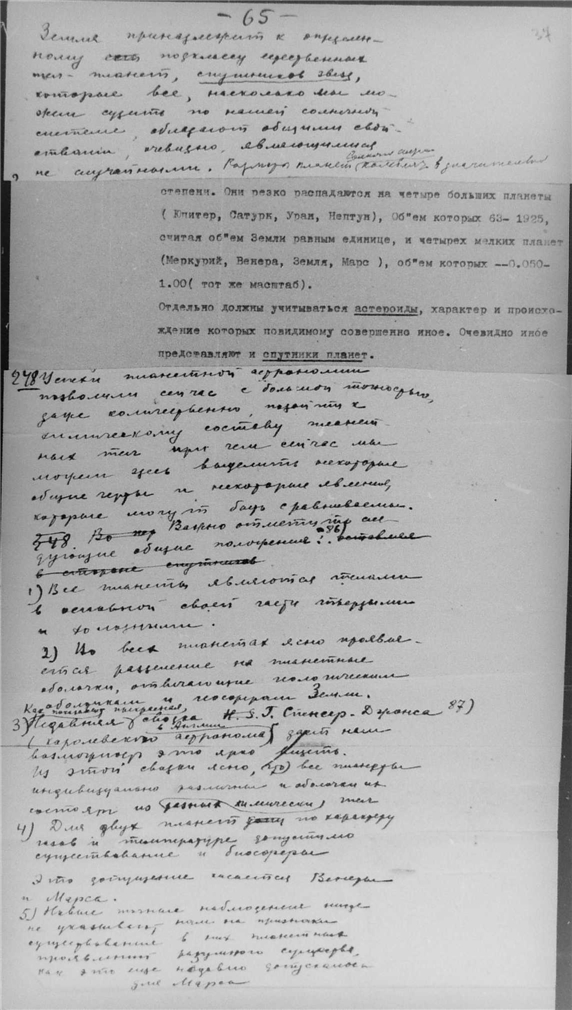 - 65 -
34
Земля принадлежит к определен-
ному подклассу естественных
тел - планет, спутников звезд,
которые все, насколько мы мо-
жем судить по нашей солнечной
системе, обладают общими свой-
ствами, очевидно, являющимися
не случайными. Размеры планет в значительной
степени. Они резко распадаются на четыре больших планеты
( Юпитер, Сатурк, Уран, Нептун), Об"ем которых 63- 1925,
считая об"ем Земли равным единице, и четырех мелких планет
(Меркурий, Венера, Земля, Марс ), об"ем которых --0.050-
1.00( тот же масштаб).
Отдельно должны учитываться астероиды, характер и происхо-
ждение которых повидимому совершенно иное. Очевидно иное
представляют и спутники планет.
248 Успехи планетной астрономии
позволили сейчас с большой точностью,
даже количественно, подойти к
химическому составу планет-
ных тел при чем сейчас мы
можем здесь выделить некоторые
общие черты и некоторые явления,
которые могут быть сравниваемы.
§48. Во пер Важно отметить сле-
дующие общие положения 86): оставляя
в стороне спутников
1) Все планеты являются телами
в основной своей части твердыми
и холодными.
2) На всех планетах ясно проявля-
ется разделение на планетные
оболочки, отвечающие геологическим
оболочкам и геосферам Земли.
3) Недавняя сводка Н. S. Г. Спенсер-Джонса 87)
(королевского астронома в Англии) дает нам
возможность это ярко видеть.
Из этой сводки ясно, что все планеты
индивидуально различны и оболочки их
состоят из разных химически тел
4) Для двух планет по характеру
газов и температуре допустимо
существование и биосферы
Это допущение касается Венеры
и Марса.
5) Новые точные наблюдения нигде
не указывают нам на признаки
существования в них планетных
проявлений разумного существа,
как это еще недавно допускалось
для Марса